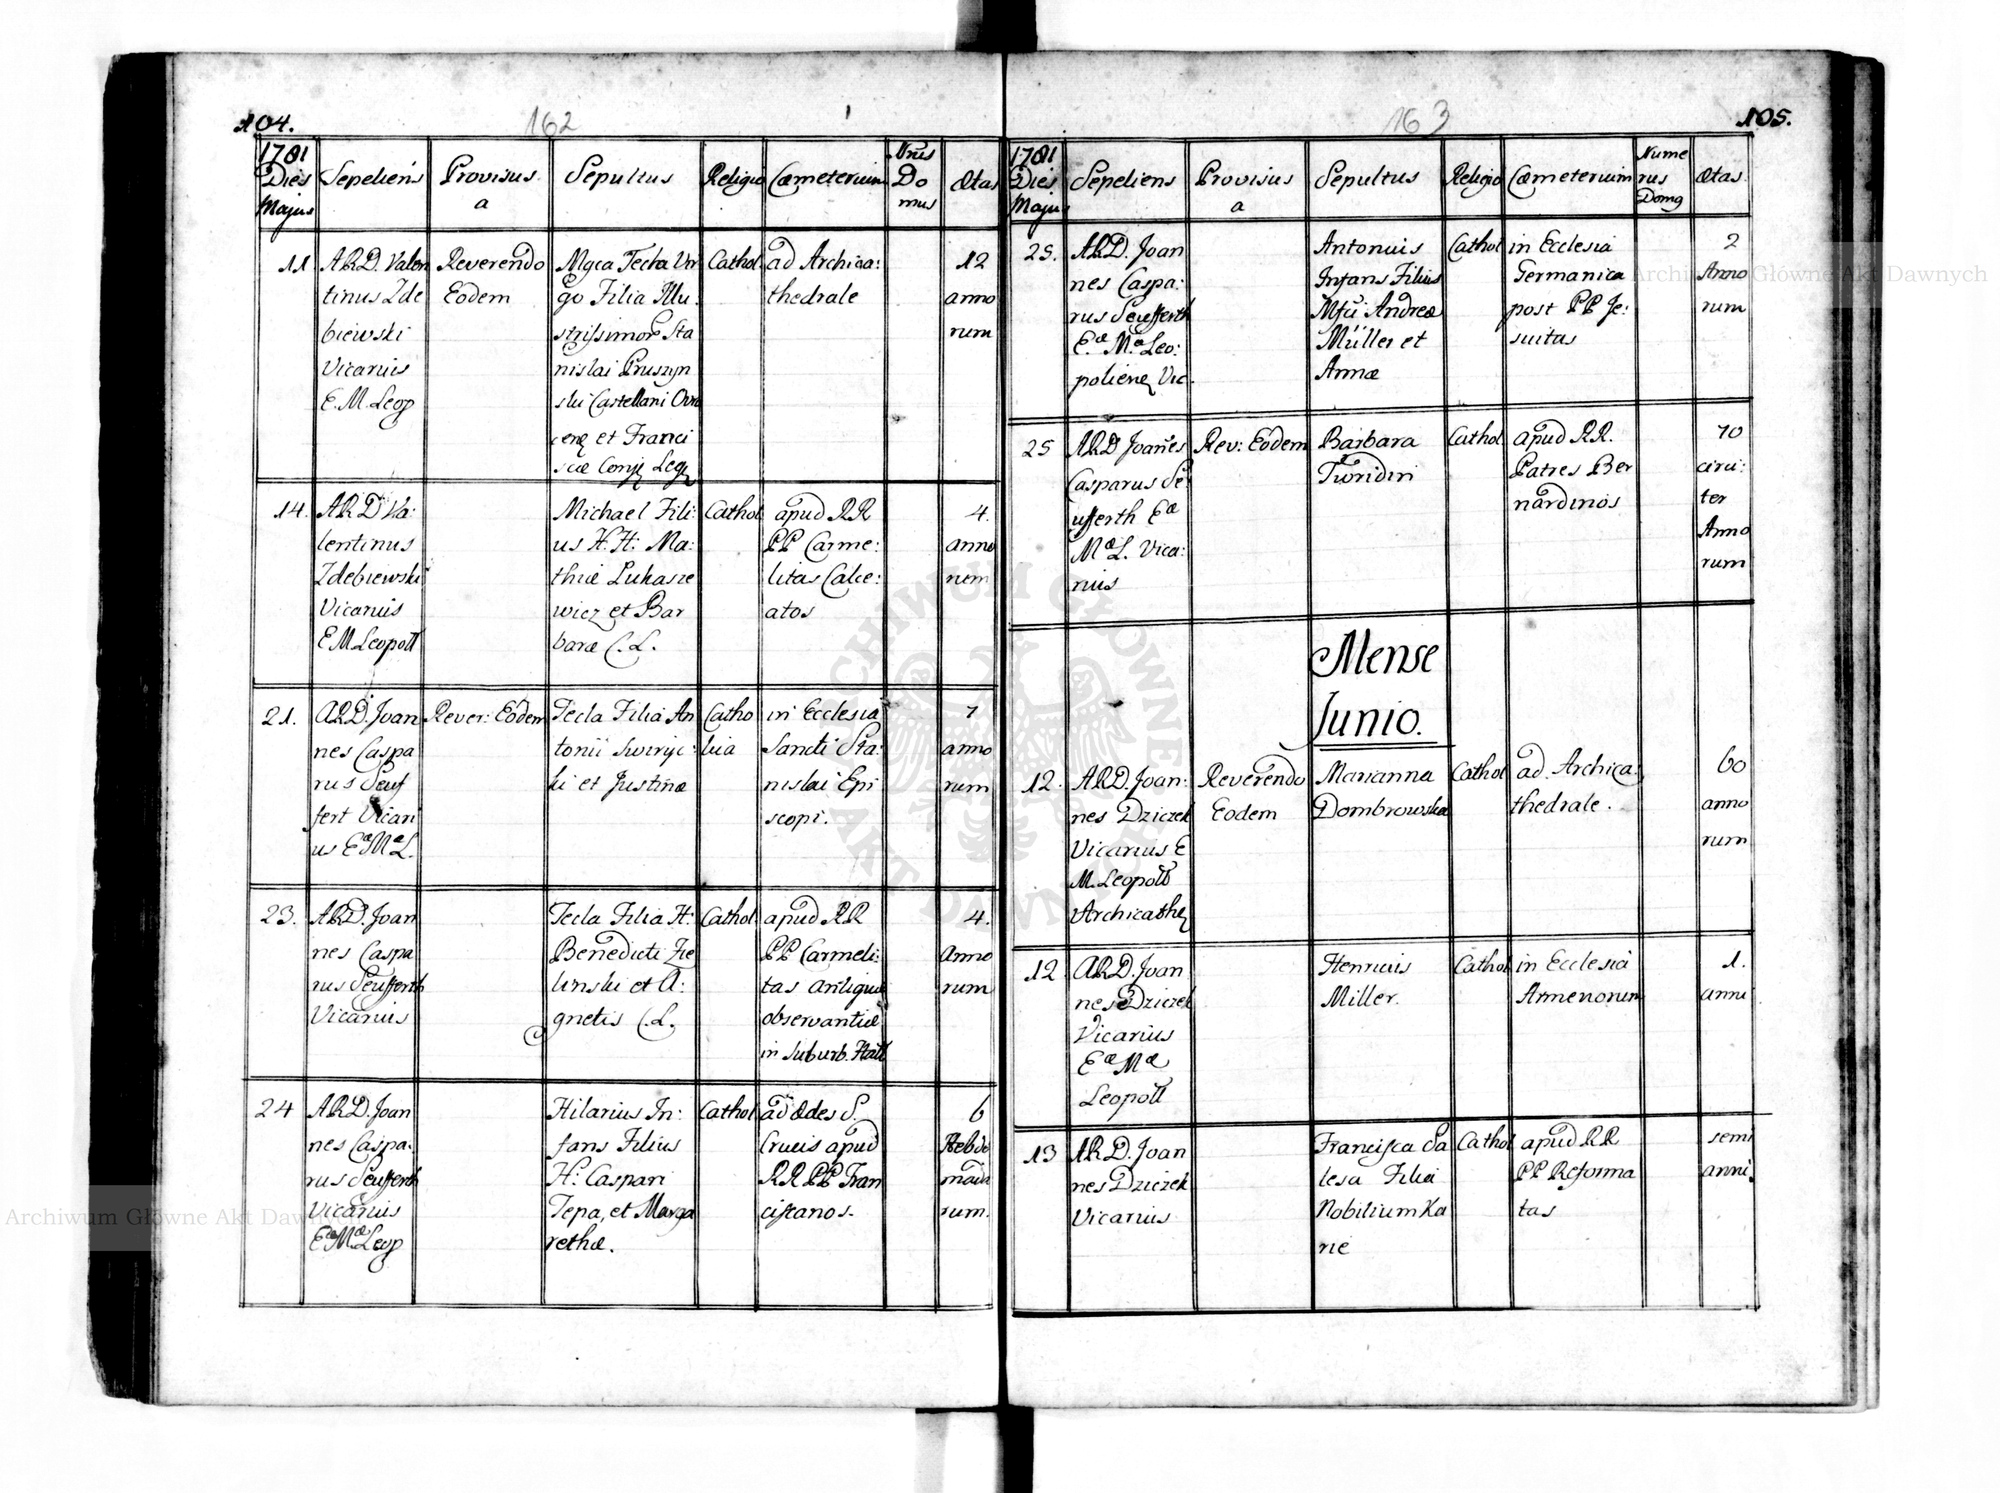 104.
162
1781
Dies
Majus
Sepeliens
Provisus
a
Sepultus
Religio
Cœmeterium
Nrus
Do
mus
Ætas
11
ARD. Valen
tinus Zde
biewski
Vicarius
E. M. Leop
Reverendo
Eodem
Mgca Tecla Vir
go Filia Illu
strissimor Sta
nislai Pruszyn
ski Castellani
et Franci
scæ Conj Leg
Cathol.
ad Archica:
thedrale
12
anno
rum
14.
ARD Va:
lentinus
Zdebiewski
Vicarius
E M Leopoll
Michael Fili:
us H. H: Ma:
thiæ Lukasze
wicz et Bar
baræ C. L.
Cathol
apud RR
PP Carme:
litas Calce:
atos
4.
anno
rum
21.
ARD. Joan
nes Caspa
rus Seuf
fert Vicari
us Eæ Mæ L.
Rever: Eodem
Tecla Filia An
tonii Swirsc:
ki et Justinæ
Catho
lica
in Ecclesia
Sancti Sta:
nislai Epi
scopi.
7
anno
rum
23.
ARD. Joan
nes Caspa
rus Seufferth
Vicarius
Tecla Filia H:
Benedicti Zie
linski et A:
gnetis C. L.
Cathol.
apud RR
PP Carmeli:
tas antiquæ
observantiæ
in suburb. Hall
4.
Anno
rum
24
ARD. Joan
nes Caspa:
rus Seufferth
Vicarius
Eæ Mæ Leop
Hilarius In:
fans Filius
H: Caspari
Tepa, et Marga
rethæ.
Cathol
ad ædes S.
Crucis apud
RR PP Fran
ciscanos.
6
Hebdo
mada
rum.
105.
163
1781
Dies
Majus
Sepeliens
Provisus
a
Sepultus
Religio
Cœmeterium
Nume
rus
Domg
Ætas
25.
ARD. Joan
nes Caspa:
rus Seufferth
Eæ Mæ Leo:
poliens Vic.
Antonius
Infans Filius
Mfci Andreæ
Müller et
Annæ
Cathol
in Ecclesia
Germanica
post PP Je:
suitas
2
Anno
rum
25
ARD Joanes
Casparus Se
ufferth Eæ
Mæ L. Vica:
rius
Rev: Eodem
Barbara
Twridin
Cathol
apud RR.
Patres Ber
nardinos
70
circi:
ter
Anno
rum
Mense
Junio.
12.
ARD. Joan:
nes Dziczek
Vicarius E
M. Leopoll
Archicathe
Reverendo
Eodem
Marianna
Dombrowska
Cathol
ad Archica:
thedrale.
60
anno
rum
12
ARD. Joan
nes Dziczek
Vicarius
Eæ Mæ
Leopoll
Henricus
Miller.
Cathol
in Ecclesia
Armenorum
1.
anni
13
ARD. Joan
nes Dziczek
Vicarius
Francisca Sa
lesa Filia
Nobilium Ka
rie
Cathol
apud RR
PP Reforma
tas
semi
anni.
ARCHIWUM GŁÓWNE
AKT DAWNYCH
Archiwum Główne Akt Dawnych
Archiwum Główne Akt Dawnych